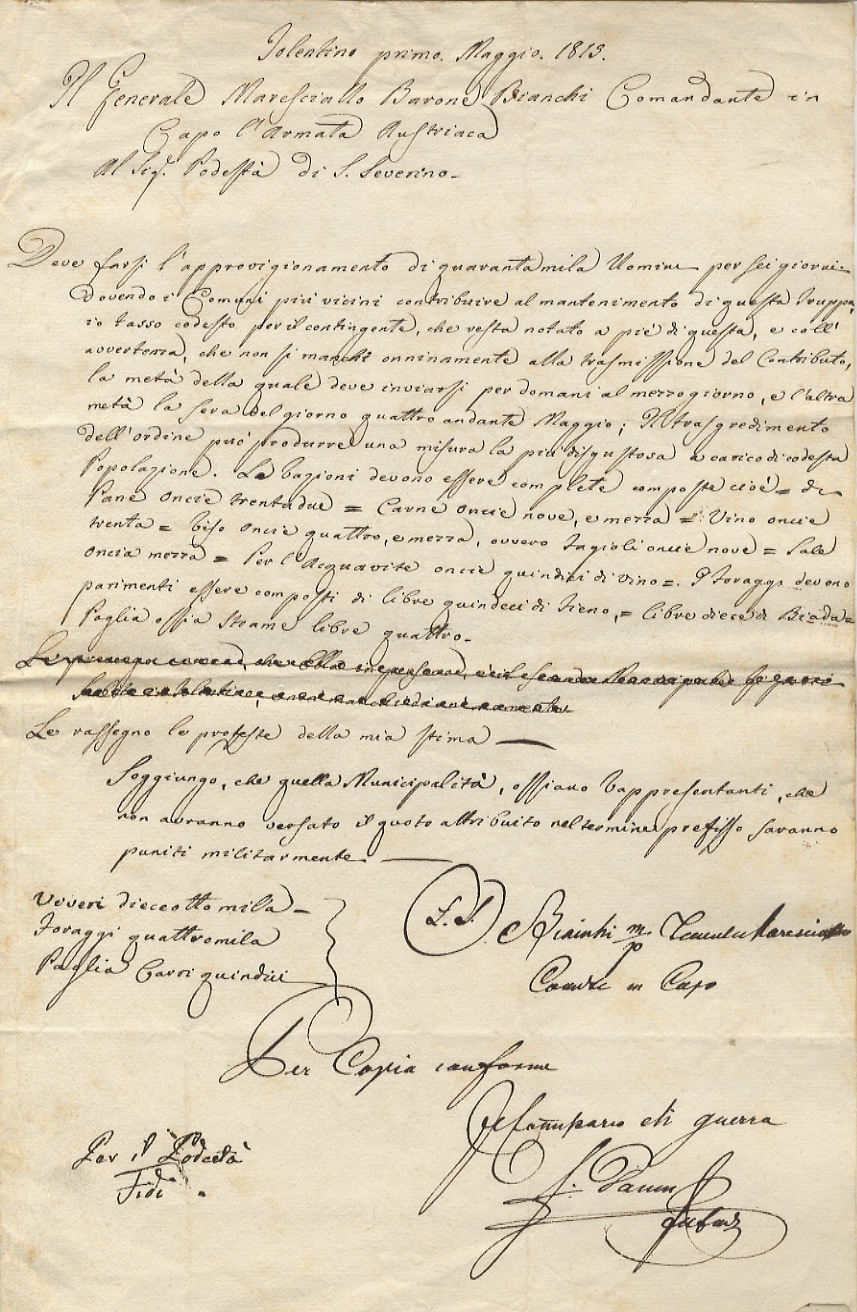 Tolentino primo. Maggio. 1815.
Il Generale Maresciallo Barone Bianchi Comandante in
Capo l'Armata Austriaca
Al Sig.r Podestà di S. Severino.
Deve farsi l'approvigionamento di quaranta mila Uomini per sei giorni.
Dovendo i Comuni più vicini contribuire al mantenimento di questa Truppa,
io tasso codesto per il contingente, che resta notato a piè di questa, e coll'
avvertenza, che non si manchi onninamente alla trasmissione del Contributo,
la metà della quale deve inviarsi per domani al mezzogiorno, e l'altra
metà la sera del giorno quattro andante Maggio; Il trasgredimento
dell'ordine può produrre una misura la più disgustosa a carico di codesta
Popolazione. Le Razioni devono essere complete composte cioè = di
Pane oncie trentadue = Carne oncie nove, e mezza = Vino oncie
trenta = Riso oncie quattro, e mezza, ovvero Fagioli oncie nove = Sale
oncia mezza = Per l'Acquavite oncie quindici di vino =. I Foraggi devono
parimenti essere composti di libre quindeci di Fieno, = libre diece di Biada =
Paglia ossia Strame libre quattro.
Le rassegno le proteste della mia stima —
Soggiungo, che quella Municipalità, ossiano Rappresentanti, che
non avranno versato il quoto attribuito nel termine prefisso saranno
puniti militarmente —
Viveri dieceotto mila —
Foraggi quattromila
Paglia Carri quindici
L. S. Bianchi m/p Tenente Maresciallo
Comd.te in Capo
Per Copia conforme
Il Commissario di guerra
Per il Podestà